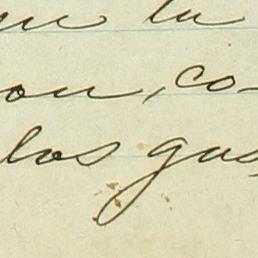 en la
on, co-
los gas